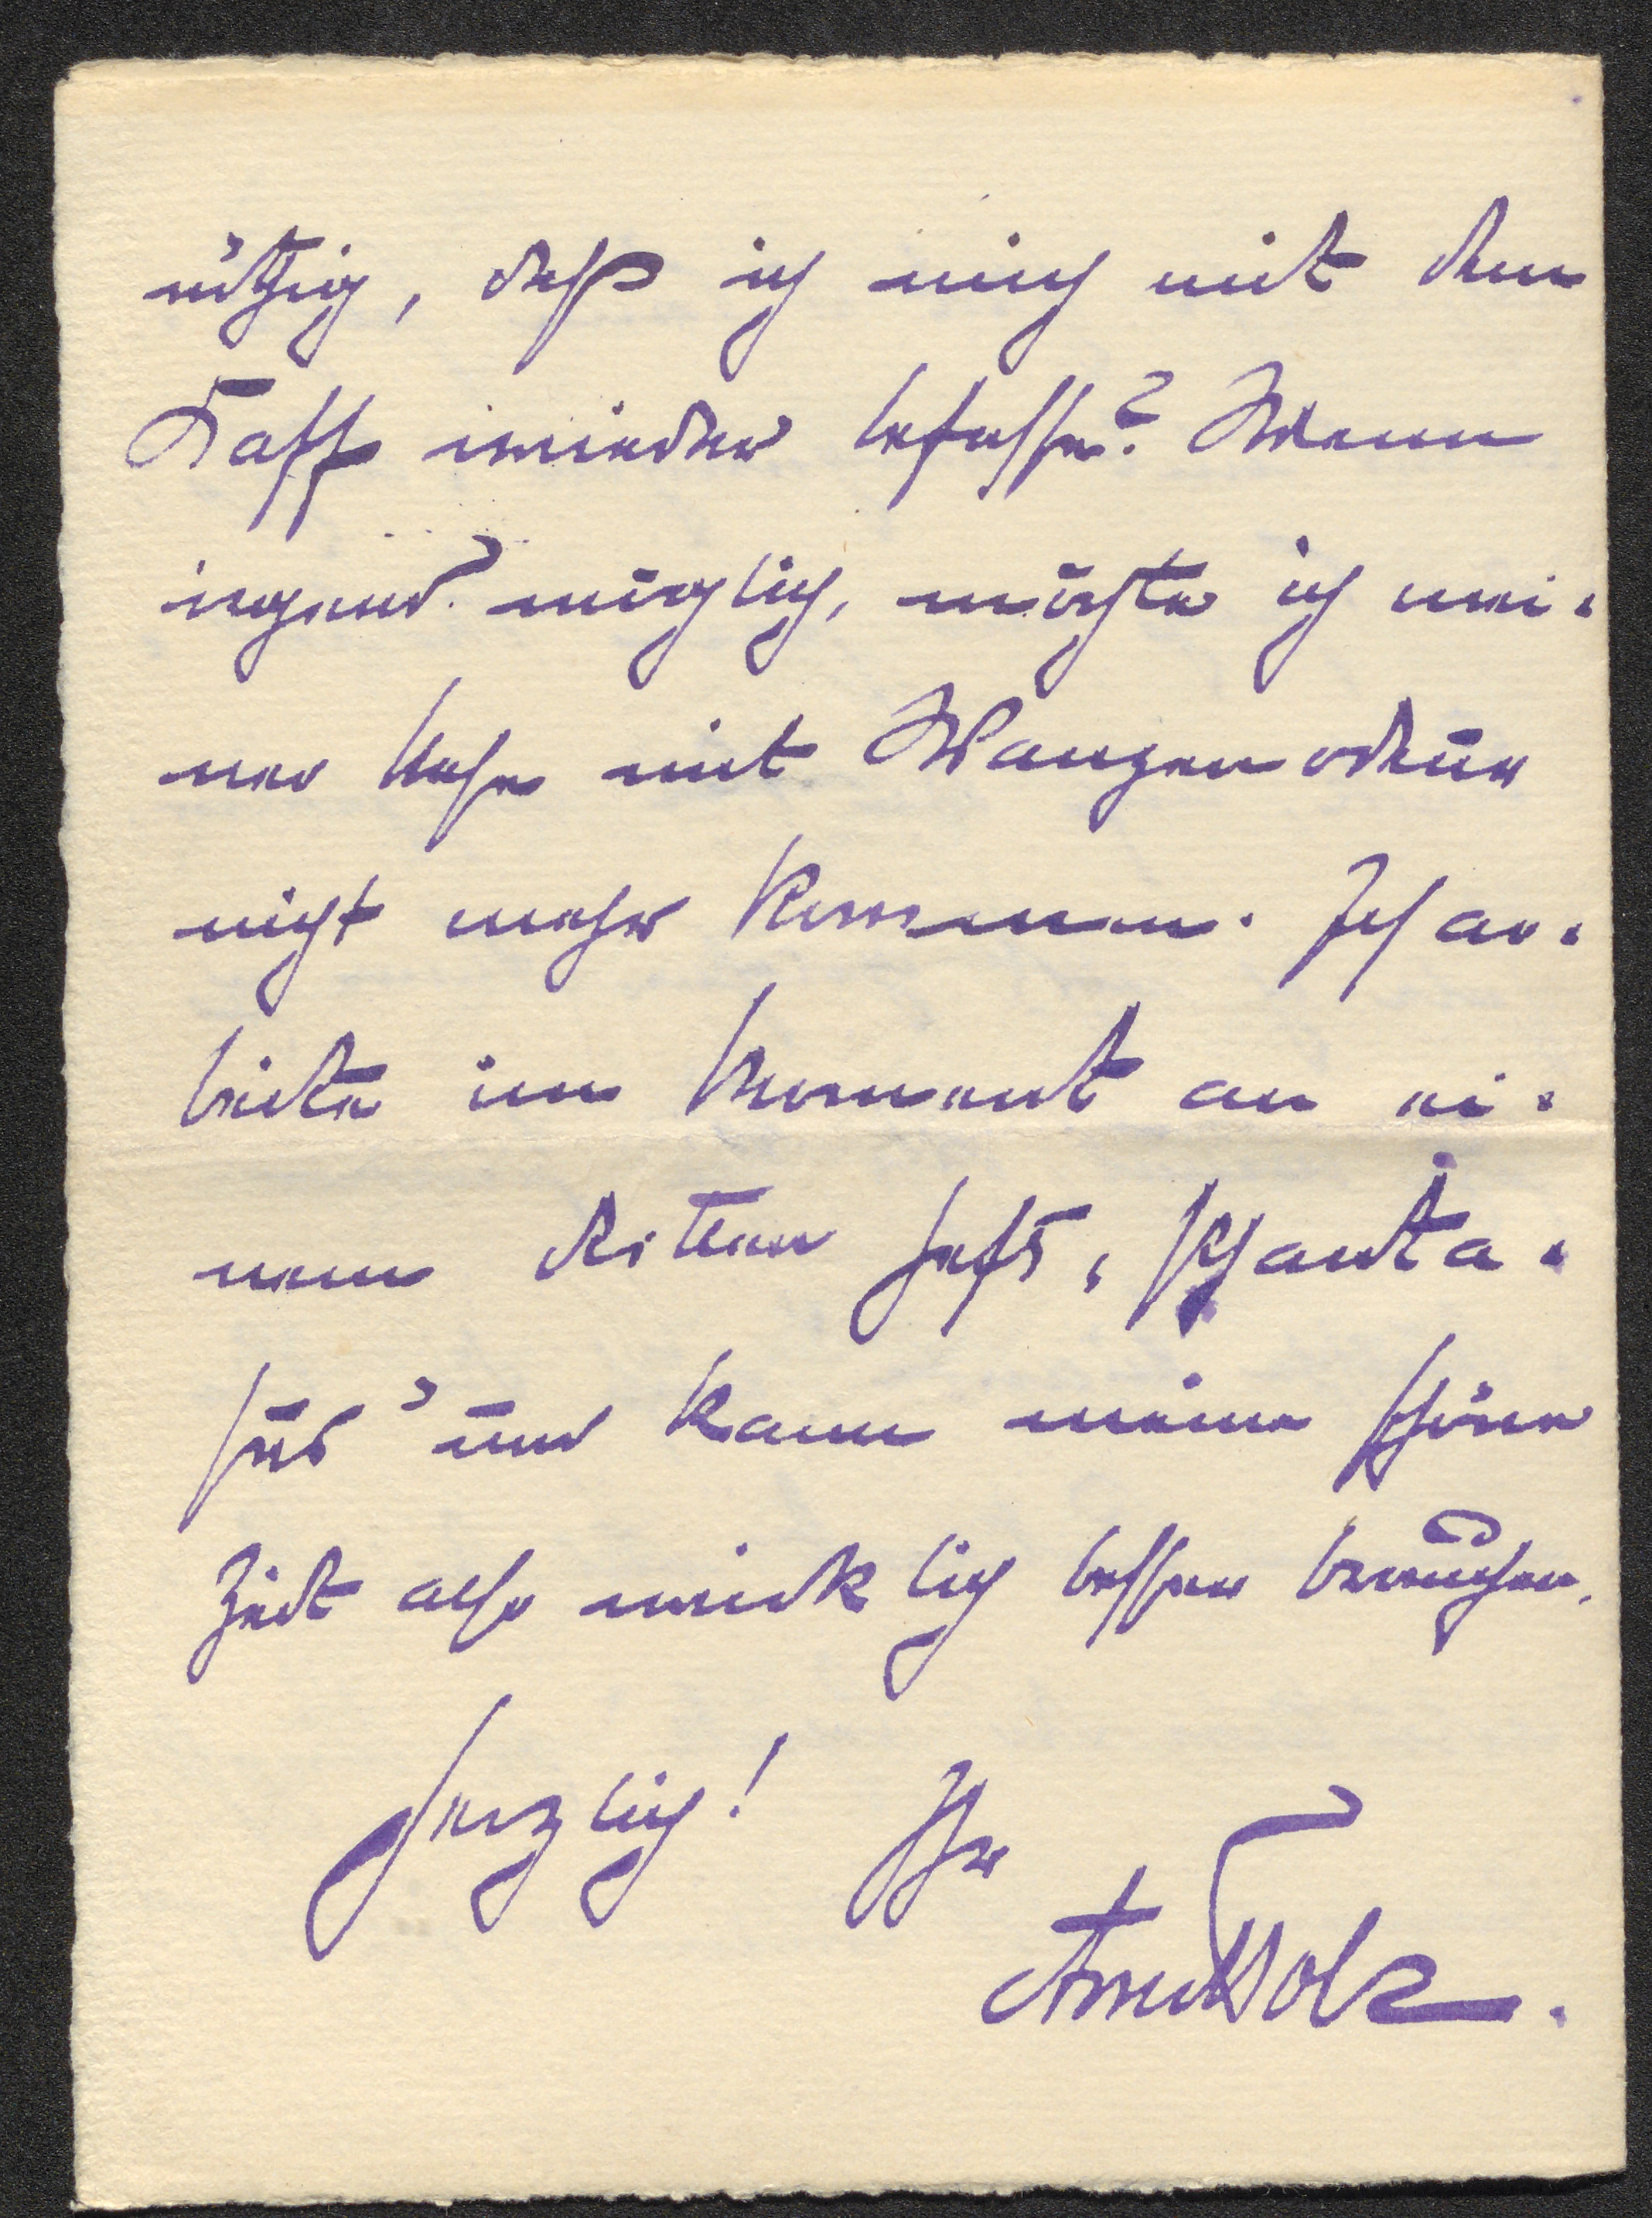 nöthig, daß ich mich mit dem
wieder befasse? Wenn
irgend möglich, möchte ich mei-
ner Muse mit Wanzenodeur
nicht mehr kommen. Ich ar-
beite im Moment an ei-
nem dritten Heft „Phanta-
sus" und kann meine schöne
Zeit also wirklich besser brauchen.
Herzlich! Ihr
Arno Holz.